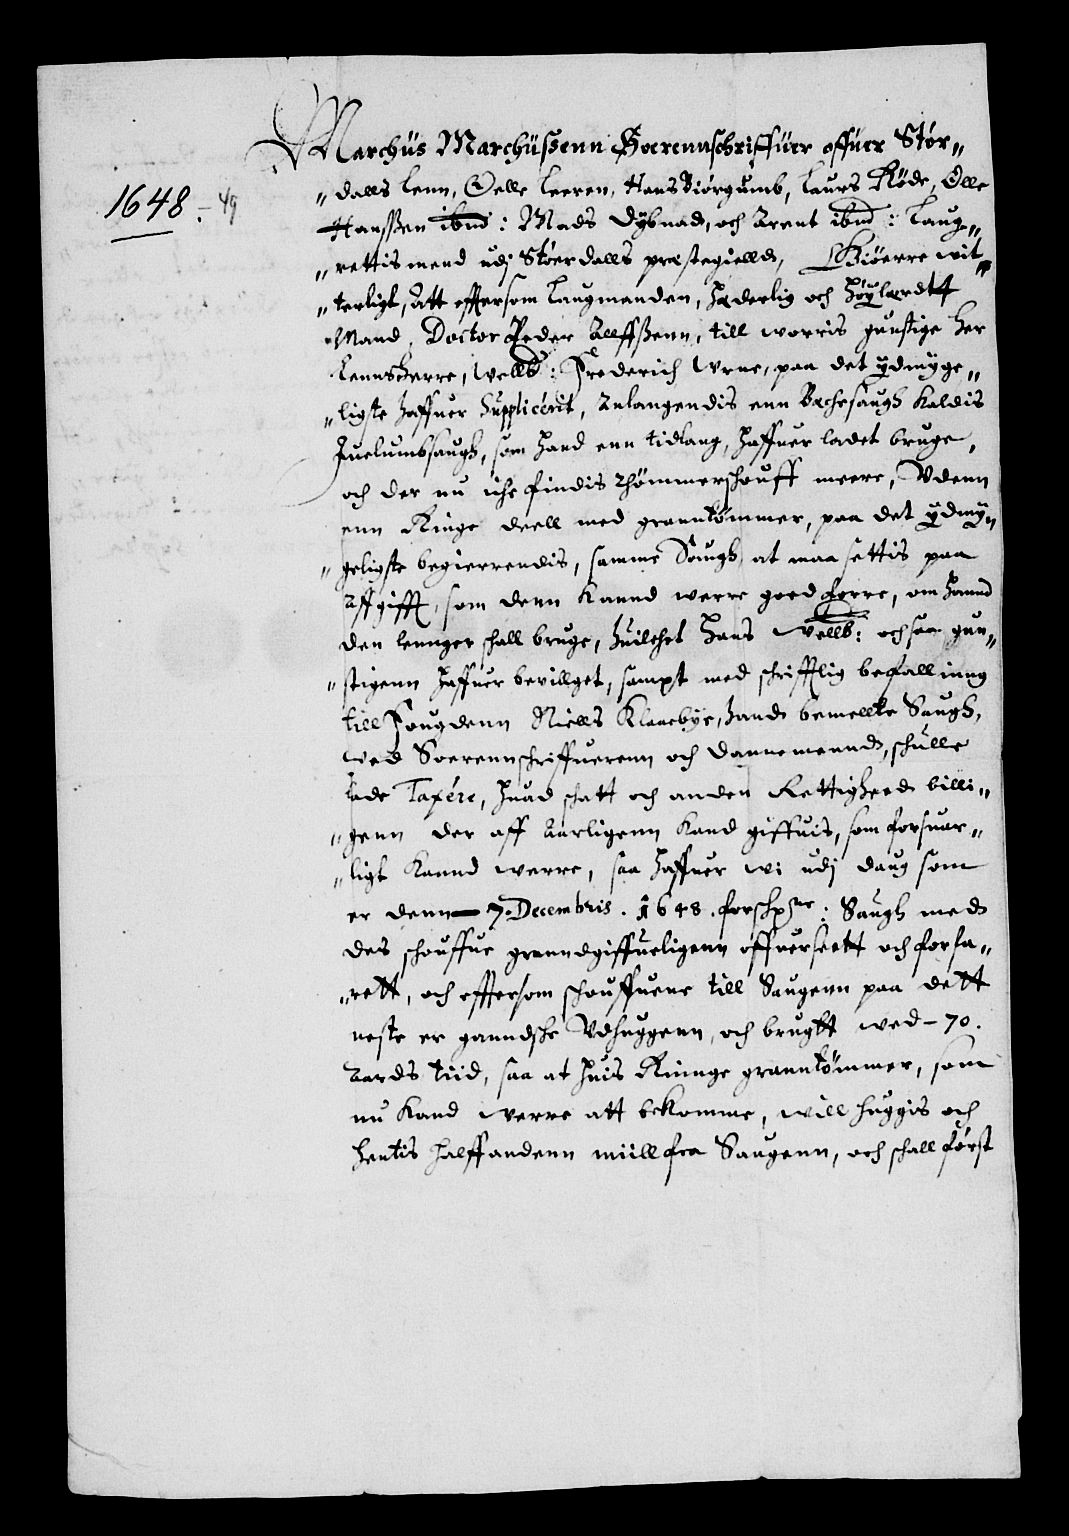 Marchus Marchussenn Soerennschriffuer offuer Stør„
1648 - 49
„dalls Lenn, Oelle Leeren, Hans Biörgumb, Laurs Røde, Olle
Hanssen ibnd: Mads Dybuad, och Arent ibnd: Laug„
„rettis mend udj Stöerdalls præstegielld, Giöerre wit„
„terligt, Att effersom Laugmanden, Hæderlig och Höylærdt
Mand, Doctor Peder Allffssenn, till worris gunstige Her
Lennsherre, Wellb: Frederich Wrne, paa det ydmyge„
„ligste haffuer Supplicérit, Anlangendis enn Bechesaugh kaldis
Juelumbsaugh, som hand enn tidlang, haffuer ladet bruge,
och der nu iche findis Thömmerschouff meere, Vdenn
enn Ringe deell med granntømmer, paa det ydmy„
„geligste begierrendis, samme Saugh at maa settis paa
Affgifft, som denn kannd werre goed forre, om hannd
den lennger schall bruge, huilchet Hans Wellb: och saa gun„
„stigenn haffuer bevillget, sampt med schrifftlig befallinng
till Fougdenn Niells Klaaebye, hand bemellte Saugh,
wed Soerennschriffuerenn och Dannemennd, schulle
lade Taxére, Huad schatt och anden Rettigheed billi„
„genn der aff Aarligenn kand giffuis, som forsuar„
„ligt kannd werre, saa haffuer wi udj daug som
er denn 7. Decembris. 1648. forschne: Saugh med
des schouffue granndgiffueligenn offuerseett och forfa„
„rett, och efftersom schouffuene till Saugenn paa dett
neste er ganndsche Vdhuggenn, och brugtt wed - 70.
Aards tiid, saa at huis Rinnge granntömmer, som
nu kand werre att bekomme, will huggis och
hentis halffandenn miill fra Saugenn, och schall först